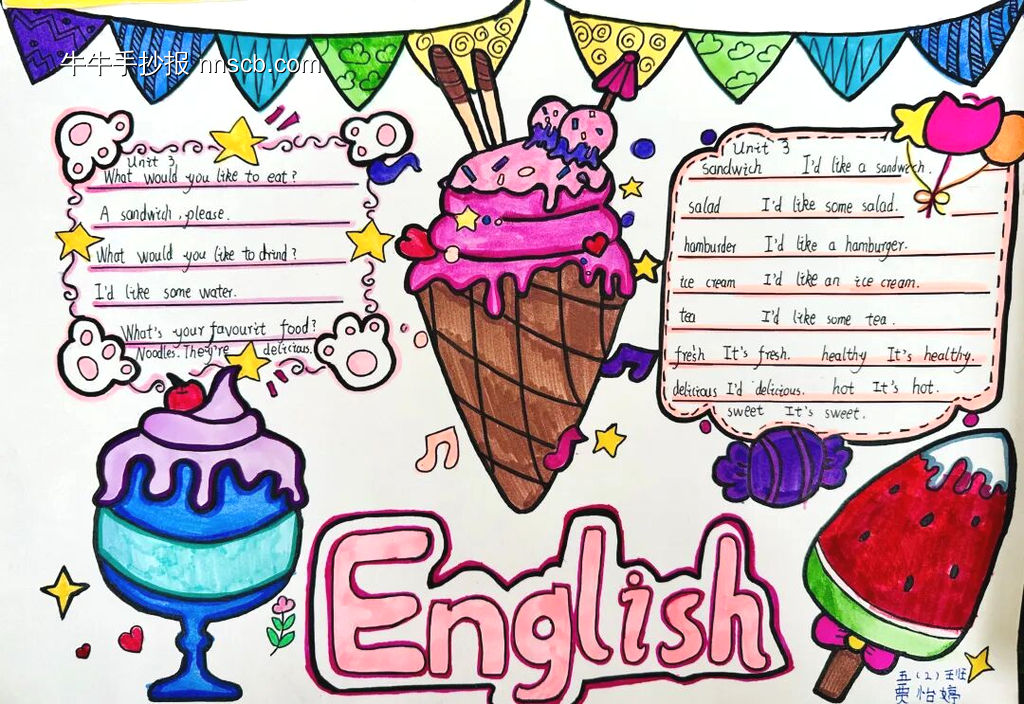 牛牛手抄报 nnscb.com
Unit 3
What would you like to eat?
A sandwich, please.
What would you like to drind?
I'd like some water.
What's your favourit food?
Noodles. They're delicious.
Unit 3
sandwich I'd like a sandwich.
salad I'd like some salad.
hamburder I'd like a hamburger.
ice cream I'd like an ice cream.
tea I'd like some tea.
fresh It's fresh. healthy It's healthy.
delicious I'd delicious. hot It's hot.
sweet It's sweet.
English
五(2)班
贾怡婷